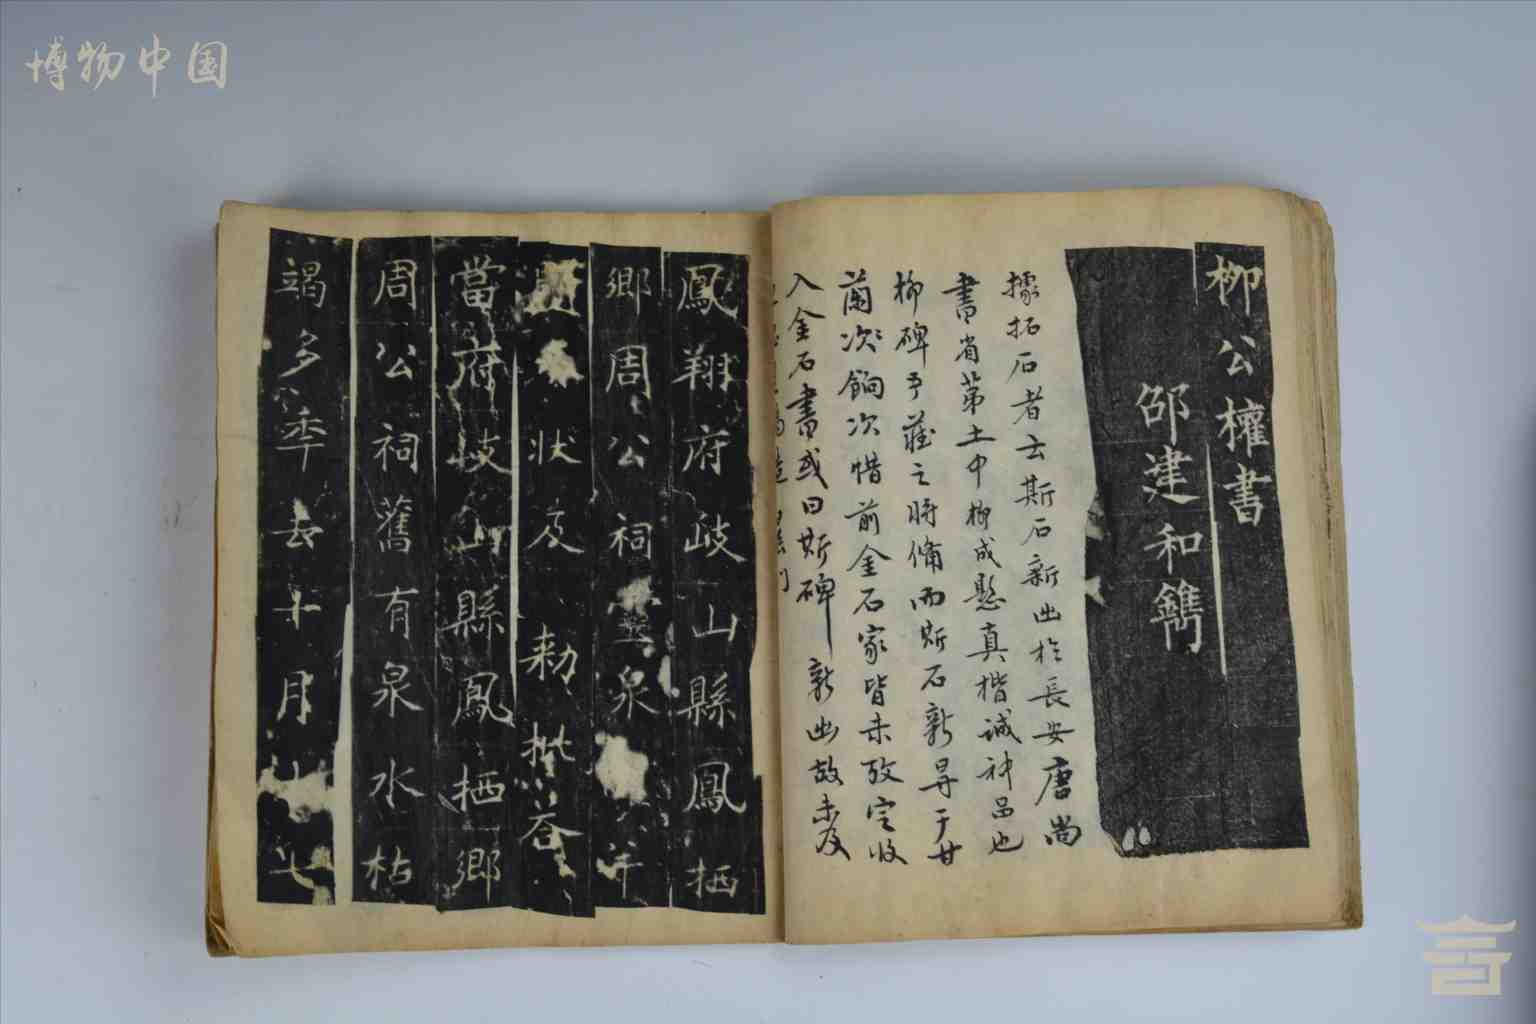 博物中国
柳公權書
邵建和鐫
據拓石者云斯石新出於長安唐尚
書省第土中柳成懸真楷誠神品也
柳碑予藏之時備而斯石新昇于甘
蘭次餉次惜前金石家皆未攷定收
入金石書或曰斯碑新出故未及
鳳翔府歧山縣鳳栖
鄉周公祠靈泉
狀及勅批荅
當府歧山縣鳳栖鄉
周公祠舊有泉水枯
竭多年去十月十七